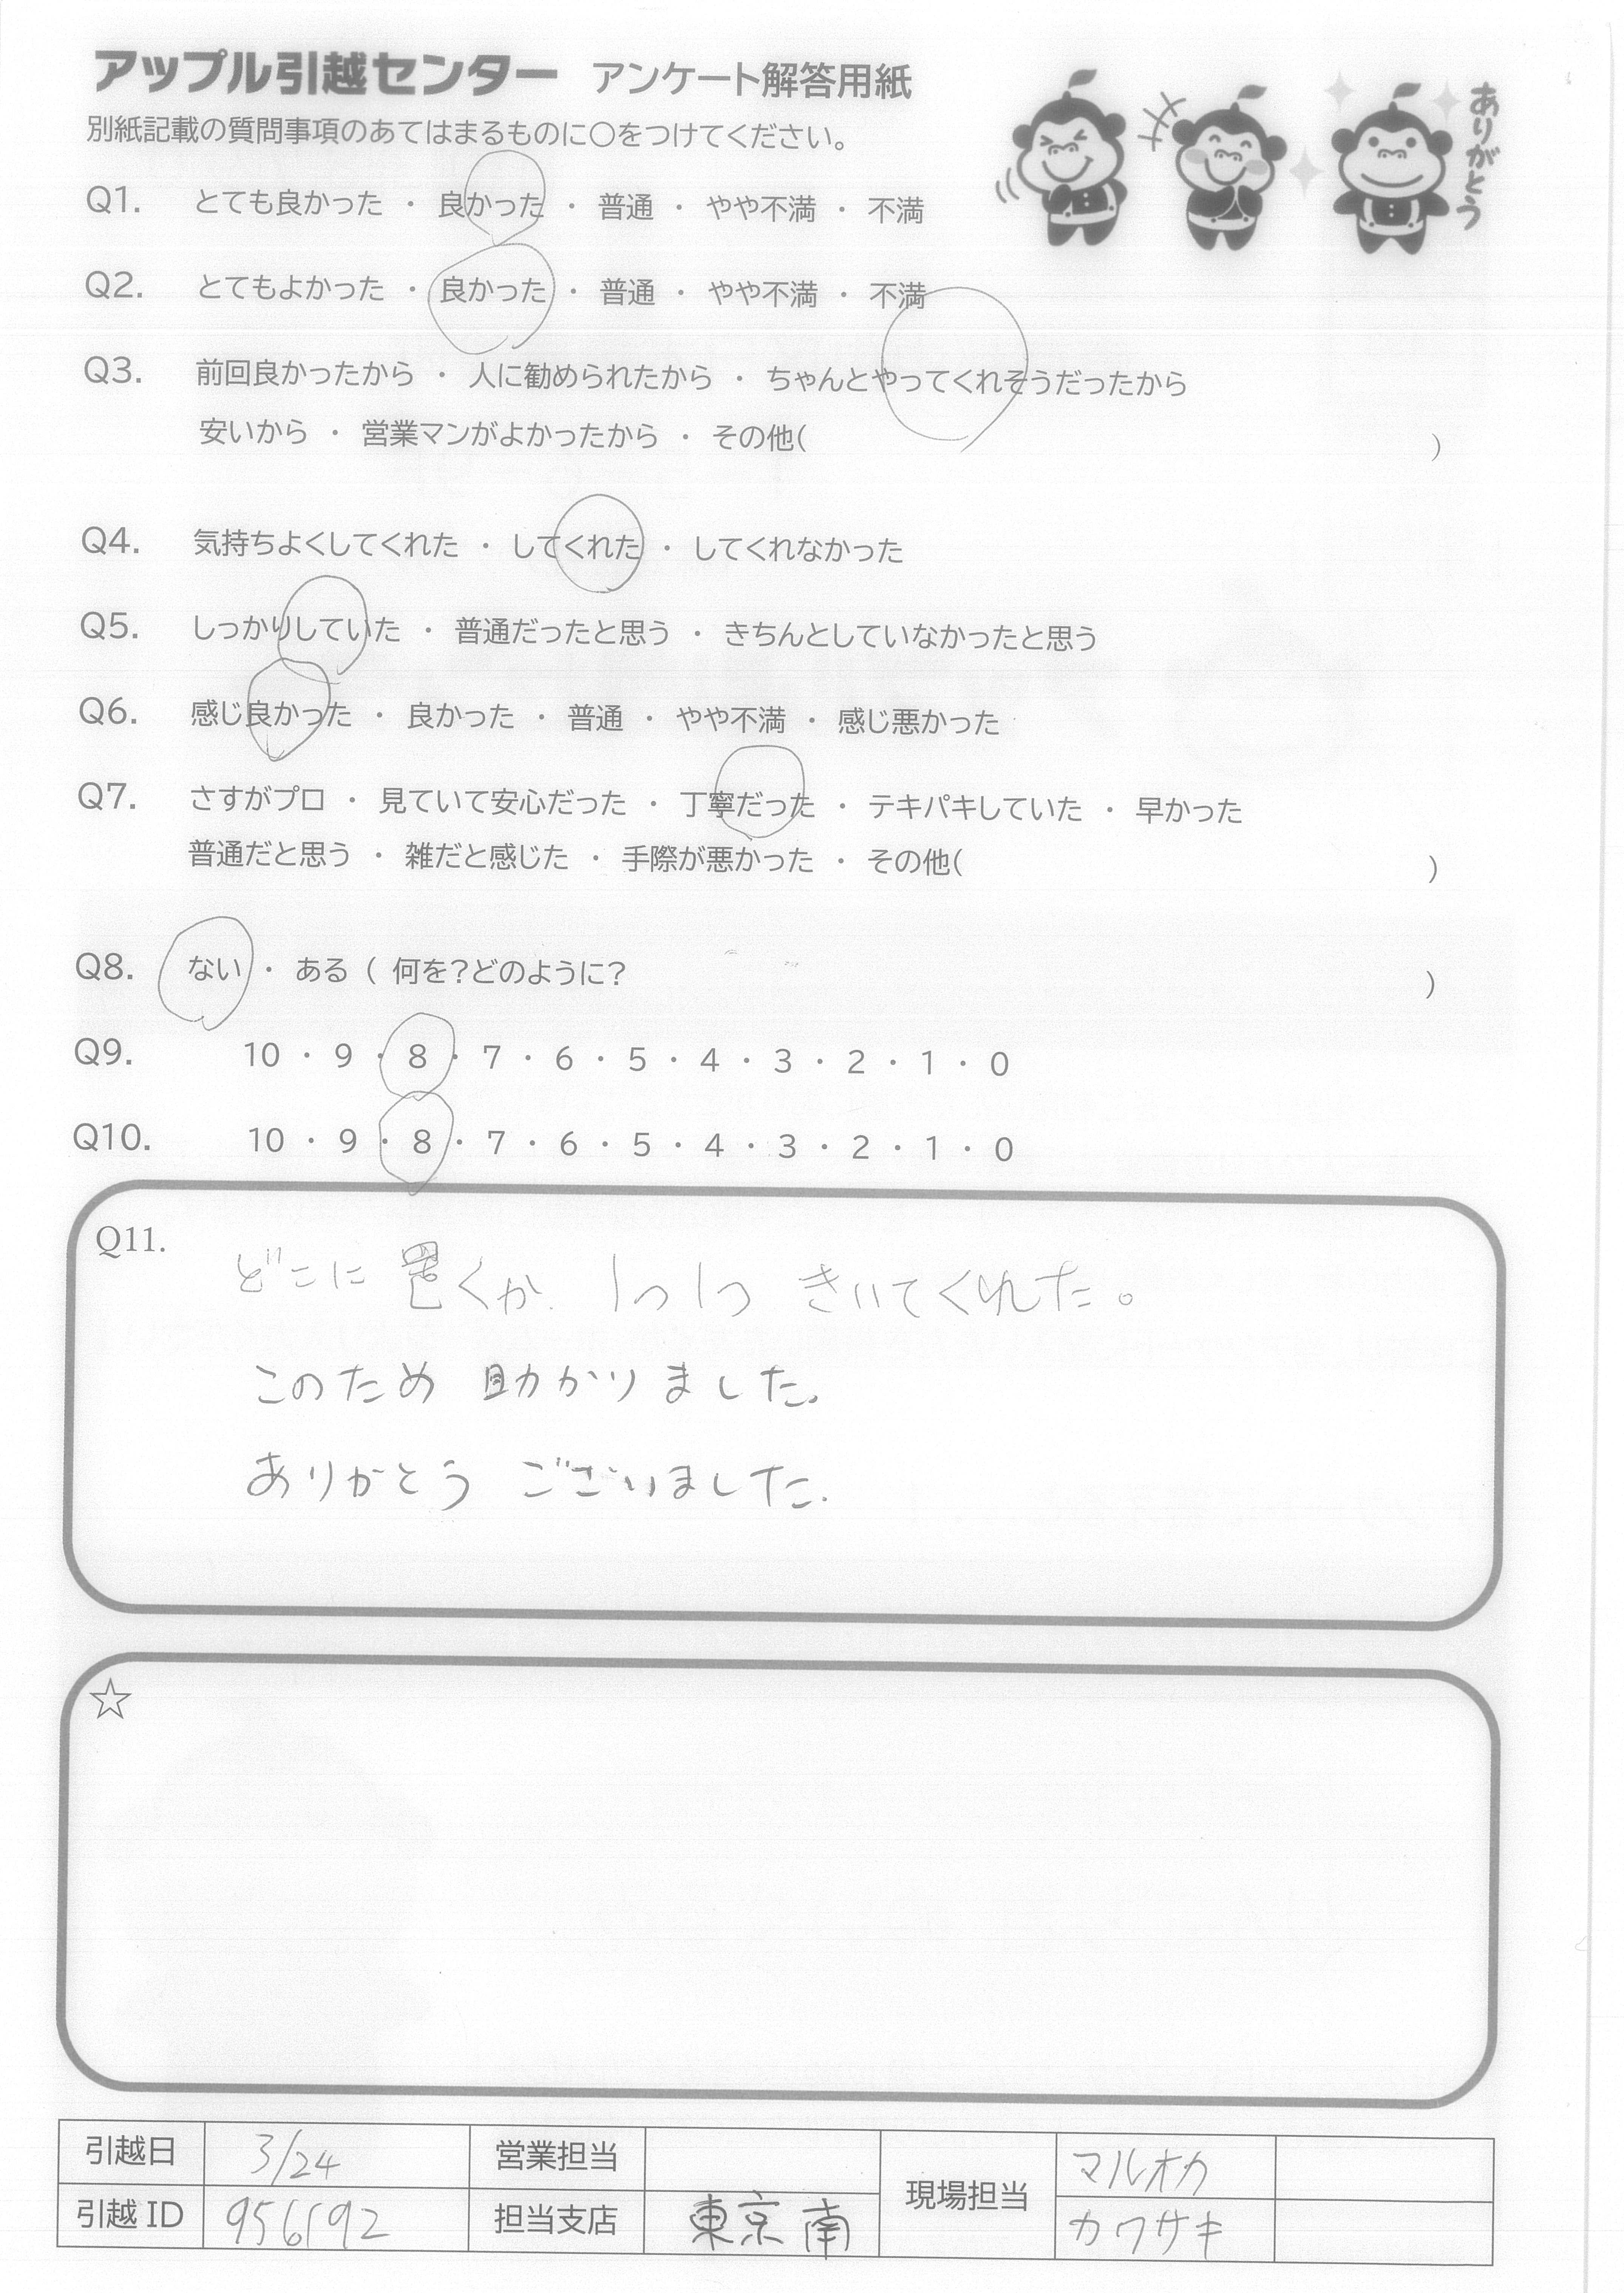 アップル引越センター アンケート解答用紙
ありがとう
別紙記載の質問事項のあてはまるものに〇をつけてください。
Q1. とても良かった ・ 良かった ・ 普通 ・ やや不満 ・ 不満
Q2. とてもよかった ・ 良かった ・ 普通 ・ やや不満 ・ 不満
Q3. 前回良かったから ・ 人に勧められたから ・ ちゃんとやってくれそうだったから
安いから ・ 営業マンがよかったから ・ その他( )
Q4. 気持ちよくしてくれた ・ してくれた ・ してくれなかった
Q5. しっかりしていた ・ 普通だったと思う ・ きちんとしていなかったと思う
Q6. 感じ良かった ・ 良かった ・ 普通 ・ やや不満 ・ 感じ悪かった
Q7. さすがプロ ・ 見ていて安心だった ・ 丁寧だった ・ テキパキしていた ・ 早かった
普通だと思う ・ 雑だと感じた ・ 手際が悪かった ・ その他( )
Q8. ない ・ ある ( 何を?どのように? )
Q9. 10 ・ 9 ・ 8 ・ 7 ・ 6 ・ 5 ・ 4 ・ 3 ・ 2 ・ 1 ・ 0
Q10. 10 ・ 9 ・ 8 ・ 7 ・ 6 ・ 5 ・ 4 ・ 3 ・ 2 ・ 1 ・ 0
Q11. どこに置くか 1つ1つ きいてくれた。
このため 助かりました。
ありがとう ございました.
☆
引越日 3/24 営業担当 現場担当 マルオカ
引越 ID 956192 担当支店 東京南 カワサキ